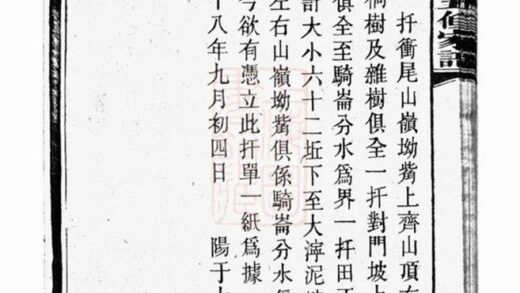 五修家譜
扦衝尾山嶺坳觜上齊山頂
桐樹及雜樹俱全一扦對門坡
俱全至騎崙分水爲界一扦田
計大小六十二坵下至大濘泥
左右山嶺坳觜俱係騎崙分水
今欲有憑立此扦單一紙爲據
十八年九月初四日 陽于